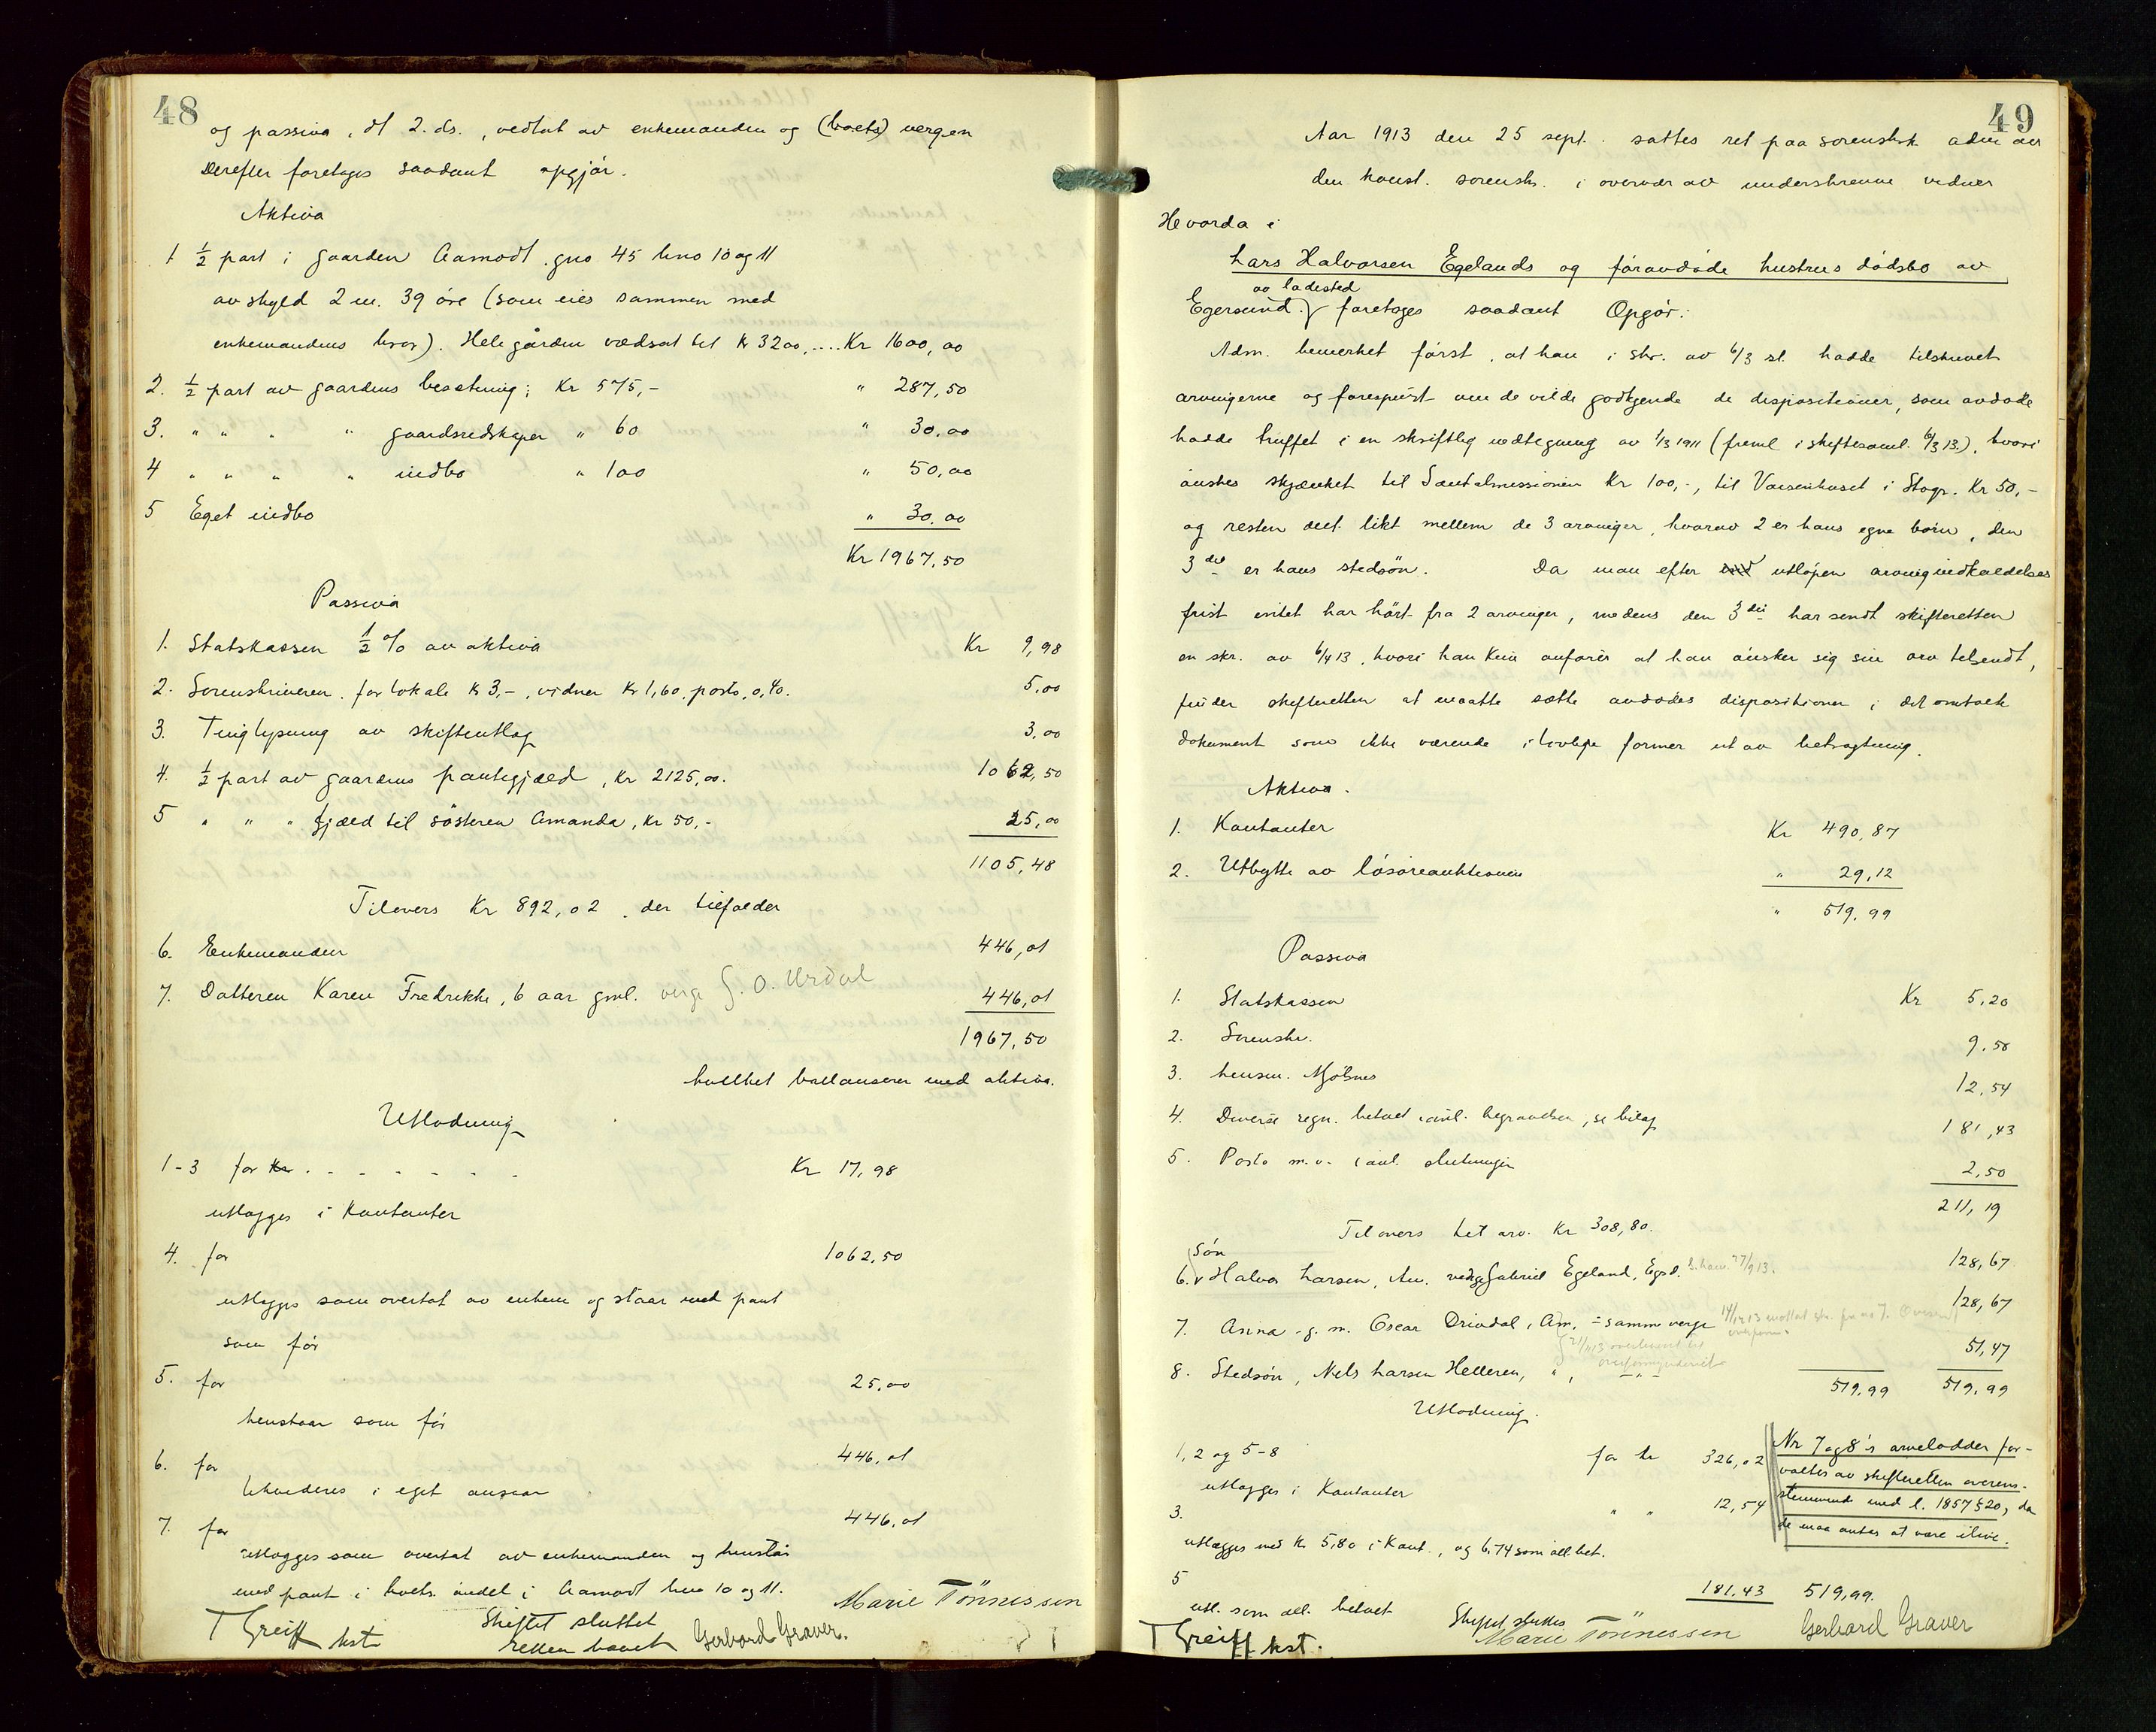 48
og passiva, dt 2. ds., vedtat av enkemanden og (boets) vergen
Derefter foretages saadant opgjør.
Aktiva
1 ½ part i gaarden Aamodt gno 45 bno 10 og 11
av skyld 2 m. 39 øre (som eies sammen med
enkemandens bror). Hele gården værdsat til Kr 3200, .... Kr 1600,00
2. ½ part av gaardens besætning; Kr 575,- " 287,50
3. " " " " gaardsredskaper " 60 " 30,00
4 " " " " indbo " 100 " 50,00
5 Eget indbo " 30,00
Kr 1967,50
Passiva
1. Statskassen ½ % av aktiva Kr 9,98
2. Sorenskriveren for lokale Kr 3,-, vidner Kr 1,60, porto 0,40. 5,00
3. Tinglysning av skifteutlæg 3,00
4. ½ part av gaardens pantegjæld, Kr 2125,00. 1062,50
5 " " " gjæld til søsteren Amanda, Kr 50,- 25,00
1105,48
Tilovers Kr 892,02, der tilfalder
6. Enkemanden 446,01
7. Datteren Karen Fredrikke, 6 aar gml. verge G. O. Urdal 446,01
1967,50
hvilket ballanserer med aktiva.
Utlodning
1-3 for Kr . - - - - - - Kr 17,98
utlægges i Kontanter
4. for 1062,50
utlægges som overtat av enkem og staar med pant
som før
5. for 25,00
henstaar som før
6. for 446,01
likvideres i eget ansvar
7. for 446,01
utlægges som overtat av enkemanden og henstår
med pant i boets andel i Aamodt bno 10 og 11.
Skiftet sluttet
Retten hævet
T Greiff kst
Gerhard Graver.
Marie Tönnessen
49
Aar 1913 den 25 sept. sattes ret paa sorenskrk adm av
den konst. sorenskr. i overvær av underskrevne vidner
Hvorda i
Lars Halvorsen Egelands og føravdøde hustrus dødsbo av
Egersund av ladested foretages saadant Opgør:
Adm. bemerket først, at han i skr. av 6/3 sl. hadde tilskrevet
arvingerne og forespurt om de vilde godkjende de dispositioner, som avdøde
hadde truffet i en skriftlig vedtegning av 1/3 1911 (freml i skiftesaml. 6/3 13), hvori
ønskes skjænket til Santalmissionen Kr 100,-, til Vaisenhuset i Stvgr. Kr 50,-
og resten delt likt mellem de 3 arvinger, hvorav 2 er hans egne børn, den
3die er hans stedsøn. Da man efter utløpen arvingindkaldelses
frist intet har hørt fra 2 arvinger, medens den 3die har sendt skifteretten
en skr. av 6/4 13, hvori han kun anfører at han ønsker sig sin arv tilsendt,
finder skifteretten at maatte sætte avdødes dispositioner i det omtalte
dokument som ikke værende i lovlige former ut av betragtning.
Aktiva.
1. Kontanter Kr 490,87
2. Utbytte av løsøreauktionen " 29,12
" 519,99
Passiva
1. Statskassen Kr 5,20
2. Sorenskr. 9,58
3. Lensm. Mjølsnes 12,54
4. Diverse regn. betalt i anl. begravelsen, se bilag 181,43
5. Porto m.v. i anl. slutningen 2,50
211,19
Tilovers til arv. Kr 308,80.
6. Søn Halvor Larsen, Am. verge Gabriel Egeland, Egsd. 128,67
7. Anna g. m. Oscar Drivdal, Am. = samme verge 128,67
8. Stedsøn, Nels Larsen Helleren, " , - " - 51,47
519,99 519,99
Utlodning.
1, 2 og 5-8 for kr 326,02
utlægges i Kontanter
3. " " 12,54
utlægges med Kr 5,80 i Kont., og 6,74 som all. bet.
5 181,43 519,99.
utl. som all. betalt
Nr 7 og 8's arvelodder for-
valtes av skifteretten overens-
stemmende med l. 1857 § 20, da
de maa antas at være ilive.
Skiftet sluttes
T Greiff kst.
Marie Tönnessen
Gerhard Graver